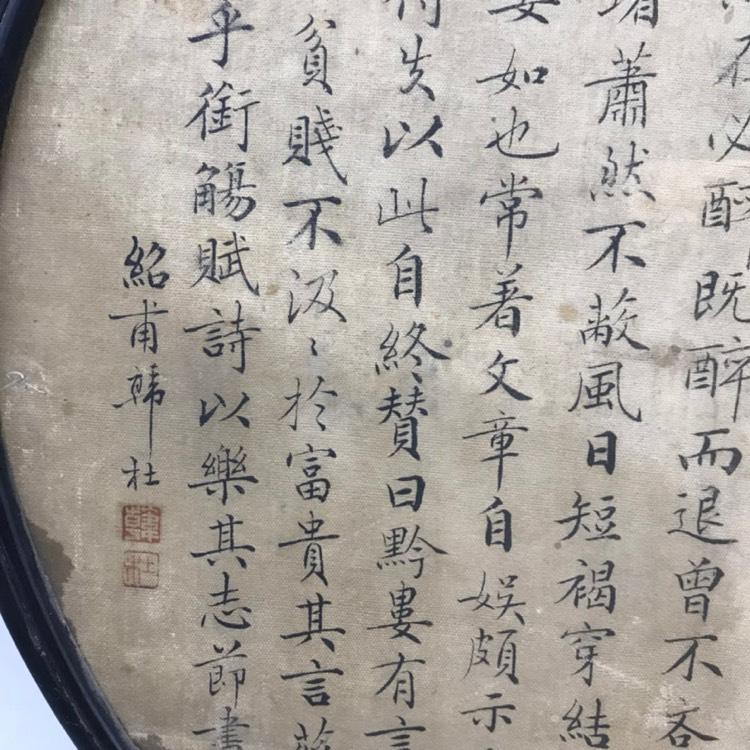 在必醉既醉而退曾不吝
堵蕭然不敝風日短褐穿結
晏如也常著文章自娛頗示
得失以此自終贊曰黔婁有言
貧賤不汲〻於富貴其言茲
乎銜觴賦詩以樂其志節書
紹甫韓杜
韓
杜